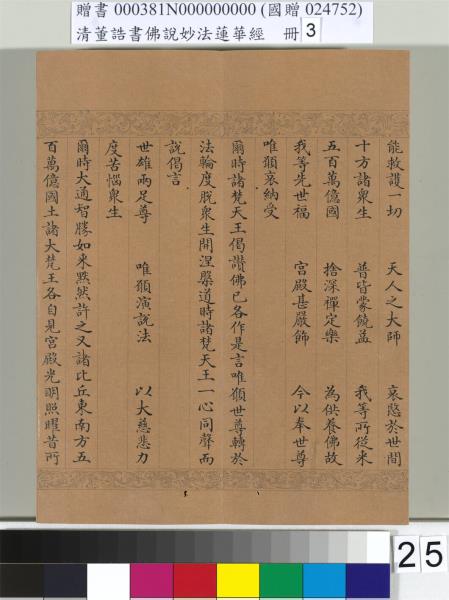 贈書 000381N000000000 (國贈 024752)
清董誥書佛說妙法蓮華經 冊 3
能救護一切 天人之大師 哀愍於世間
十方諸衆生 普皆蒙饒益 我等所從来
五百萬億國 捨深禪定樂 為供養佛故
我等先世福 宮殿甚嚴飾 今以奉世尊
唯願哀納受
爾時諸梵天王偈讚佛已各作是言唯願世尊轉於
法輪度脫衆生開涅槃道時諸梵天王一心同聲而
說偈言
世雄兩足尊 唯願演說法 以大慈悲力
度苦惱衆生
爾時大通智勝如来默然許之又諸比丘東南方五
百萬億國土諸大梵王各自見宮殿光明照曜昔所
25